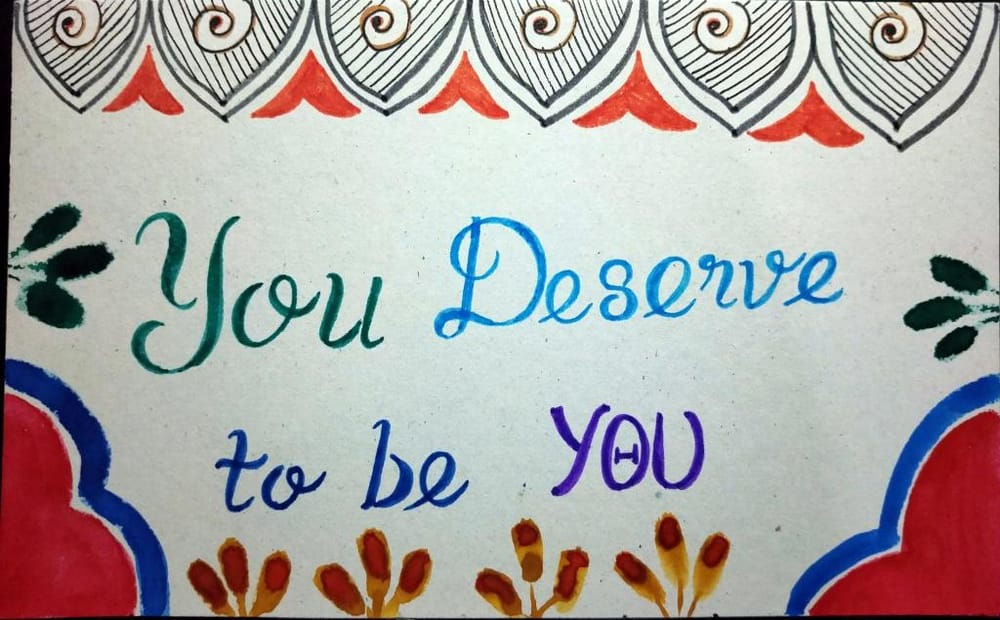 You Deserve
to be YOU